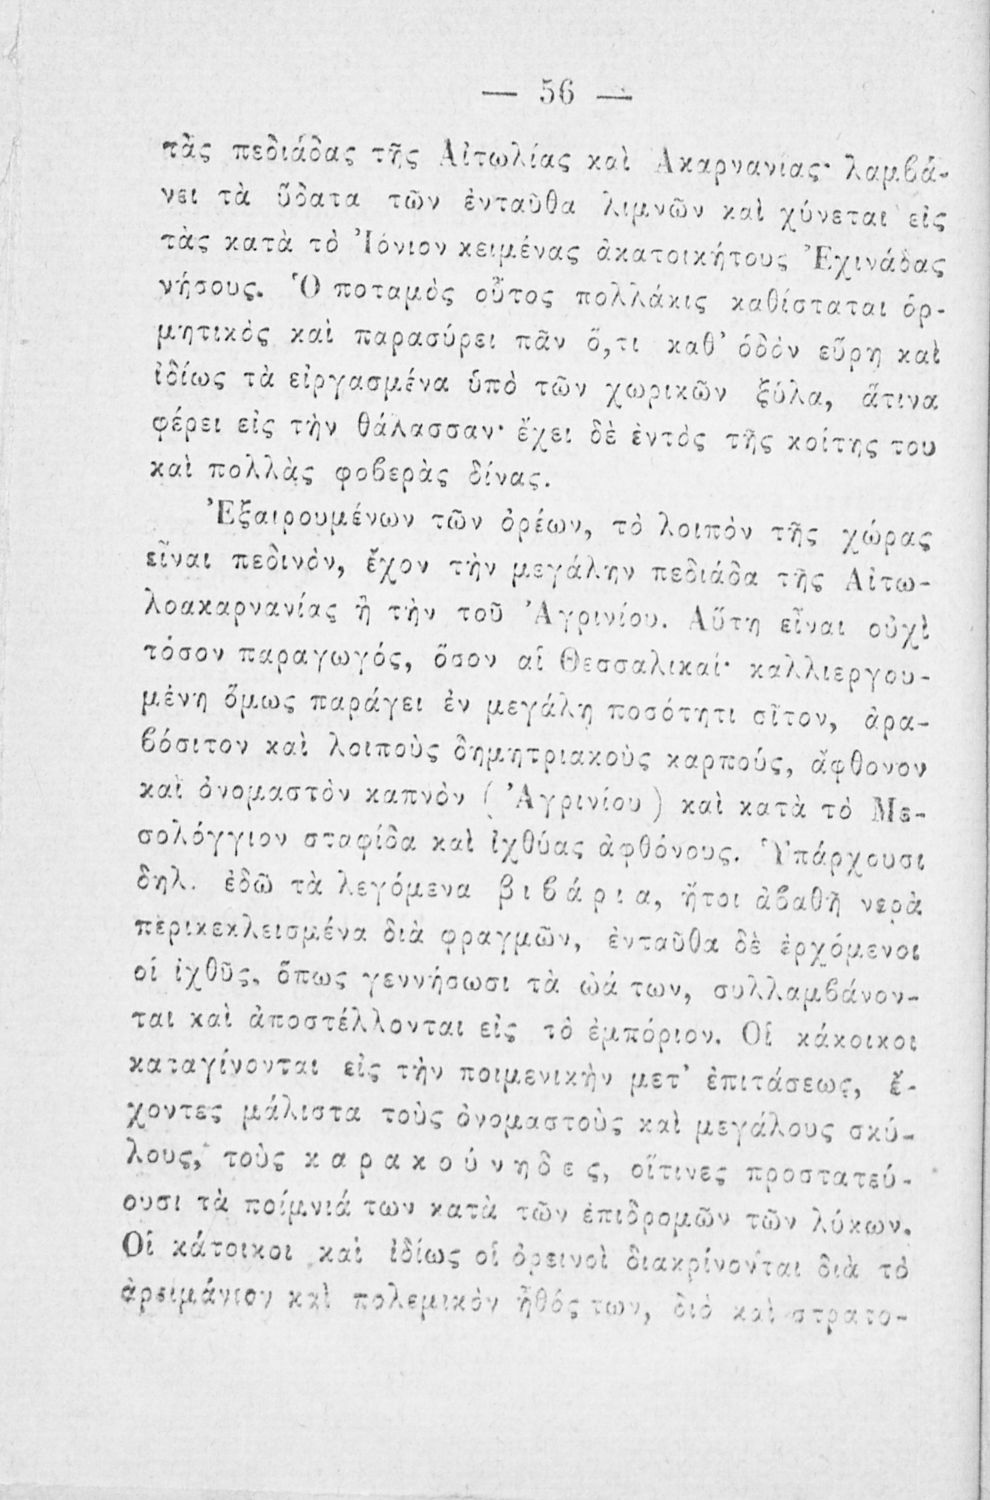 — 56 —
τὰς πεδιάδας τῆς Αἰτωλίας καὶ Ἀκαρνανίας· λαμβά-
νει τὰ ὕδατα τῶν ἐνταῦθα λιμνῶν καὶ χύνεται εἰς
τὰς κατὰ τὸ Ἰόνιον κειμένας ἀκατοικήτους Ἐχινάδας
νήσους. Ὁ ποταμὸς οὗτος πολλάκις καθίσταται ὁρ-
μητικὸς καὶ παρασύρει πᾶν ὅ,τι καθ’ ὁδὸν εὕρῃ καὶ
ἰδίως τὰ εἰργασμένα ὑπὸ τῶν χωρικῶν ξύλα, ἅτινα
φέρει εἰς τὴν θάλασσαν· ἔχει δὲ ἐντὸς τῆς κοίτης του
καὶ πολλὰς φοβερὰς δίνας.
Ἐξαιρουμένων τῶν ὀρέων, τὸ λοιπὸν τῆς χώρας
εἶναι πεδινὸν, ἔχον τὴν μεγάλην πεδιάδα τῆς Αἰτω-
λοακαρνανίας ἢ τὴν τοῦ Ἀγρινίου. Αὕτη εἶναι οὐχὶ
τόσον παραγωγός, ὅσον αἱ Θεσσαλικαί· καλλιεργου-
μένη ὅμως παράγει ἐν μεγάλῃ ποσότητι σῖτον, ἀρα-
βόσιτον καὶ λοιποὺς δημητριακοὺς καρπούς, ἄφθονον
καὶ ὀνομαστὸν καπνὸν ( Ἀγρινίου ) καὶ κατὰ τὸ Με-
σολόγγιον σταφίδα καὶ ἰχθύας ἀφθόνους. Ὑπάρχουσι
δηλ. ἐδῶ τὰ λεγόμενα βιβάρια, ἤτοι ἀβαθῆ νερὰ
περικεκλεισμένα διὰ φραγμῶν, ἐνταῦθα δὲ ἐρχόμενοι
οἱ ἰχθῦς, ὅπως γεννήσωσι τὰ ὠά των, συλλαμβάνον-
ται καὶ ἀποστέλλονται εἰς τὸ ἐμπόριον. Οἱ κάκοικοι
καταγίνονται εἰς τὴν ποιμενικὴν μετ’ ἐπιτάσεως, ἔ-
χοντες μάλιστα τοὺς ὀνομαστοὺς καὶ μεγάλους σκύ-
λους, τοὺς καρακούνηδες, οἵτινες προστατεύ-
ουσι τὰ ποίμνιά των κατὰ τῶν ἐπιδρομῶν τῶν λύκων.
Οἱ κάτοικοι καὶ ἰδίως οἱ ὀρεινοὶ διακρίνονται διὰ τὸ
ἀρειμάνιον καὶ πολεμικὸν ἦθός των, διὸ καὶ στρατο-